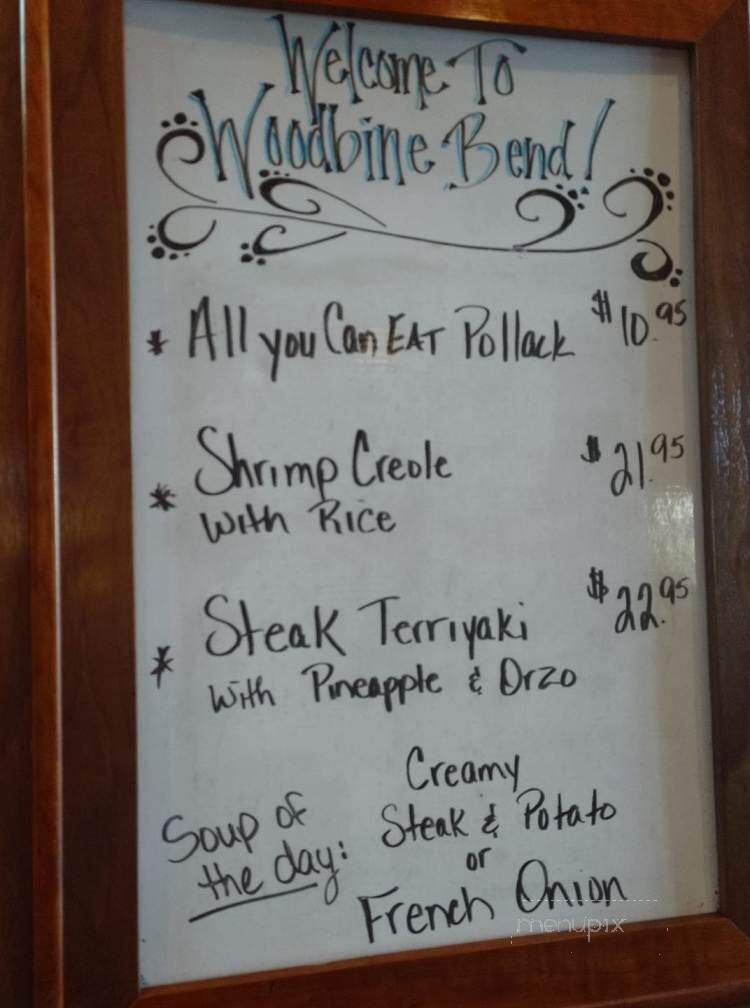 Welcome To
Woodbine Bend!
* All you Can EAT Pollack $10.95
* Shrimp Creole $21.95
with Rice
* Steak Terriyaki $22.95
with Pineapple & Orzo
Soup of the day:
Creamy
Steak & Potato
or
French Onion
menupix